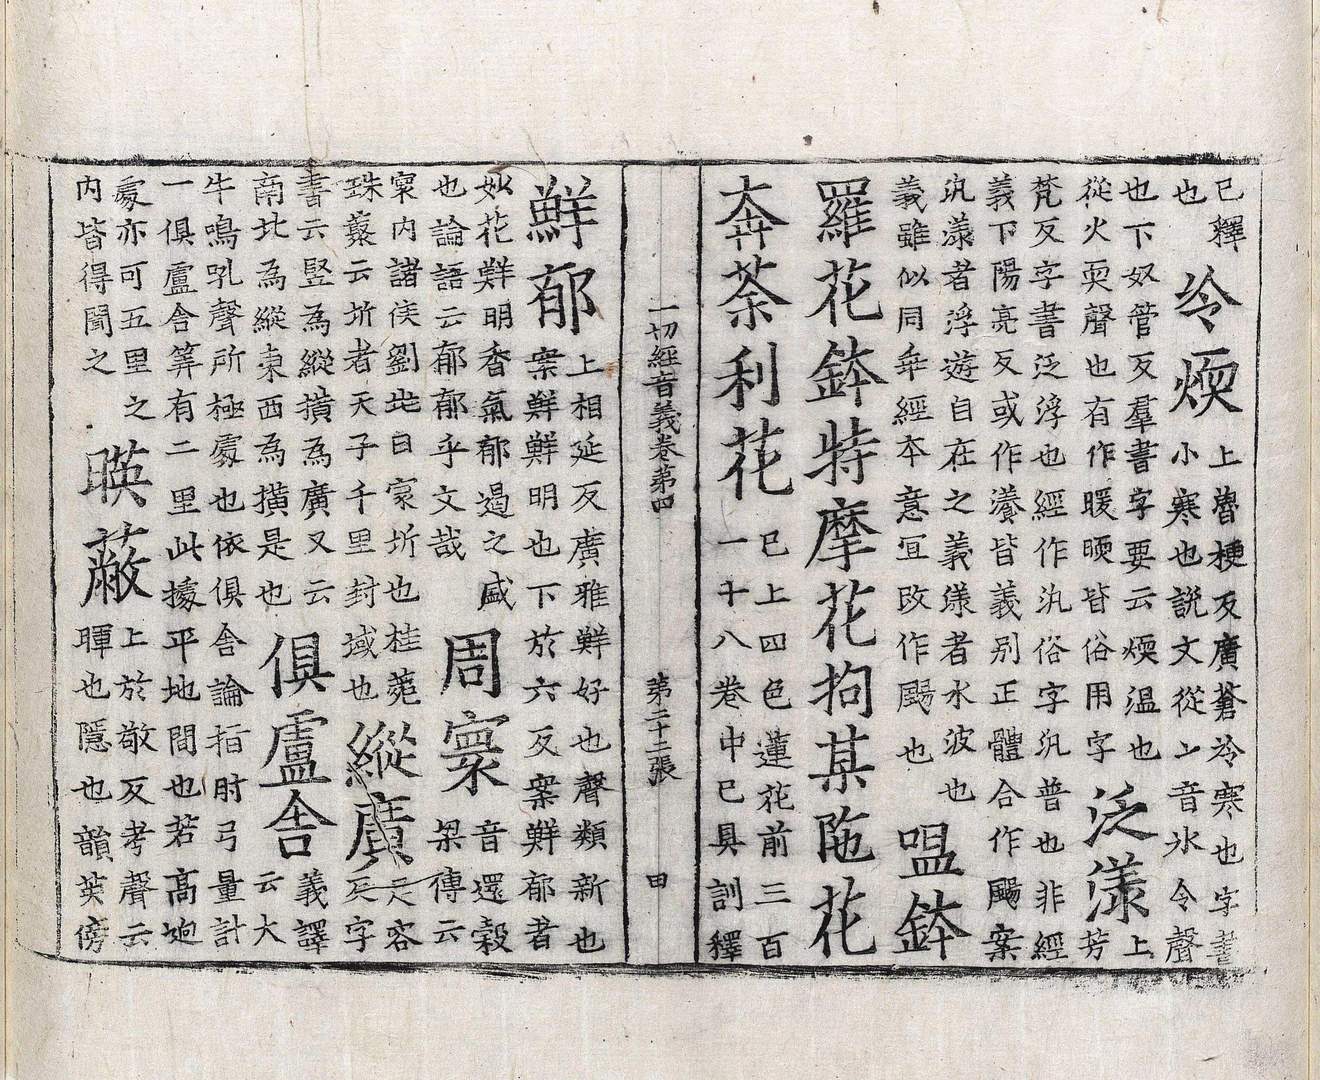 已釋
也
冷煗
上魯梗反廣蒼冷寒也字書
小寒也說文從冫音氷令聲
也下奴管反羣書字要云煗温也
從火耎聲也有作暖㬉皆俗用字
泛漾
上
芳
梵反字書泛浮也經作氿俗字氿普也非經
義下陽亮反或作瀁皆義別正體合作颺案
汎漾者浮遊自在之義漾者水波也
義雖似同乖經本意宜改作颺也
嗢鉢
羅花鉢特摩花拘某陁花
奔荼利花
已上四色蓮花前三百
一十八卷中已具訓釋
一切經音義卷第四
第二十二張
鮮郁
上相延反廣雅鮮好也聲類新也
案鮮鮮明也下於六反案鮮郁者
如花鮮明香氣郁遏之盛
也論語云郁郁乎文哉
周寰
音還穀
梁傳云
寰内諸侯劉兆曰寰圻也桂菀
珠叢云圻者天子千里封域也
縱廣
足容
反字
書云竪為縱橫為廣又云
南北為縱東西為橫是也
俱盧舍
義譯
云大
牛鳴吼聲所極處也依俱舍論指肘弓量計
一俱盧舍筭有二里此據平地間也若高逈
處亦可五里之
内皆得聞之
暎蔽
上於敬反考聲云
暉也隱也韻英傍